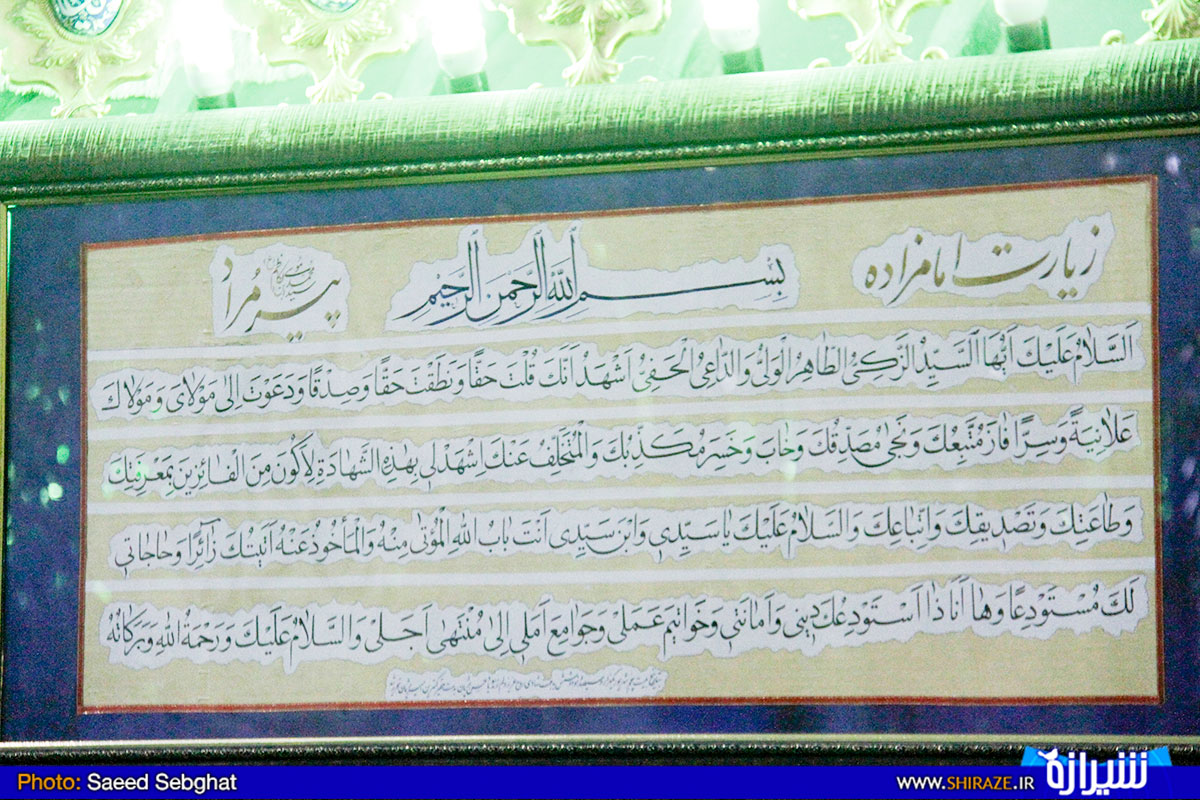 زیارت امامزاده
بِسْمِ اللهِ الرَّحْمنِ الرَّحیمِ
پیر مُراد
اَلسَّلامُ عَلَیْكَ اَیُّهَا السَّیِّدُ الزَّكِیُّ الطّاهِرُ الْوَلِیُّ وَالدّاعِی الْحَفِیُّ اَشْهَدُ اَنَّكَ قُلْتَ حَقًّا وَ نَطَقْتَ حَقًّا وَ صِدْقًا وَ دَعَوْتَ اِلی مَوْلایَ وَ مَوْلاكَ
عَلانِیَةً وَ سِرًّا فازَ مُتَّبِعُكَ وَ نَجی مُصَدِّقُكَ وَ خابَ وَ خَسِرَ مُكَذِّبُكَ وَ الْمُتَخَلِّفُ عَنْكَ اِشْهَدْ لی بِهذِهِ الشَّهادَةِ لِاَكُونَ مِنَ الْفائِزینَ بِمَعْرِفَتِكَ
وَ طاعَتِكَ وَ تَصْدیقِكَ وَ اتِّباعِكَ وَ السَّلامُ عَلَیْكَ یا سَیِّدی وَ ابْنَ سَیِّدی اَنْتَ بابُ اللهِ الْمُؤْتی مِنْهُ وَ الْمَأْخُوذُ عَنْهُ اَتَیْتُكَ زائِرًا وَ حاجاتی
لَكَ مُسْتَوْدِعًا وَ ها اَنَا ذا اَسْتَوْدِعُكَ دینی وَ اَمانَتی وَ خَواتیمَ عَمَلی وَ جَوامِعَ اَمَلی اِلی مُنْتَهی اَجَلی وَ السَّلامُ عَلَیْكَ وَ رَحْمَةُ اللهِ وَ بَرَكاتُهُ
Photo: Saeed Sebghat
WWW.SHIRAZE.IR
شیرازه